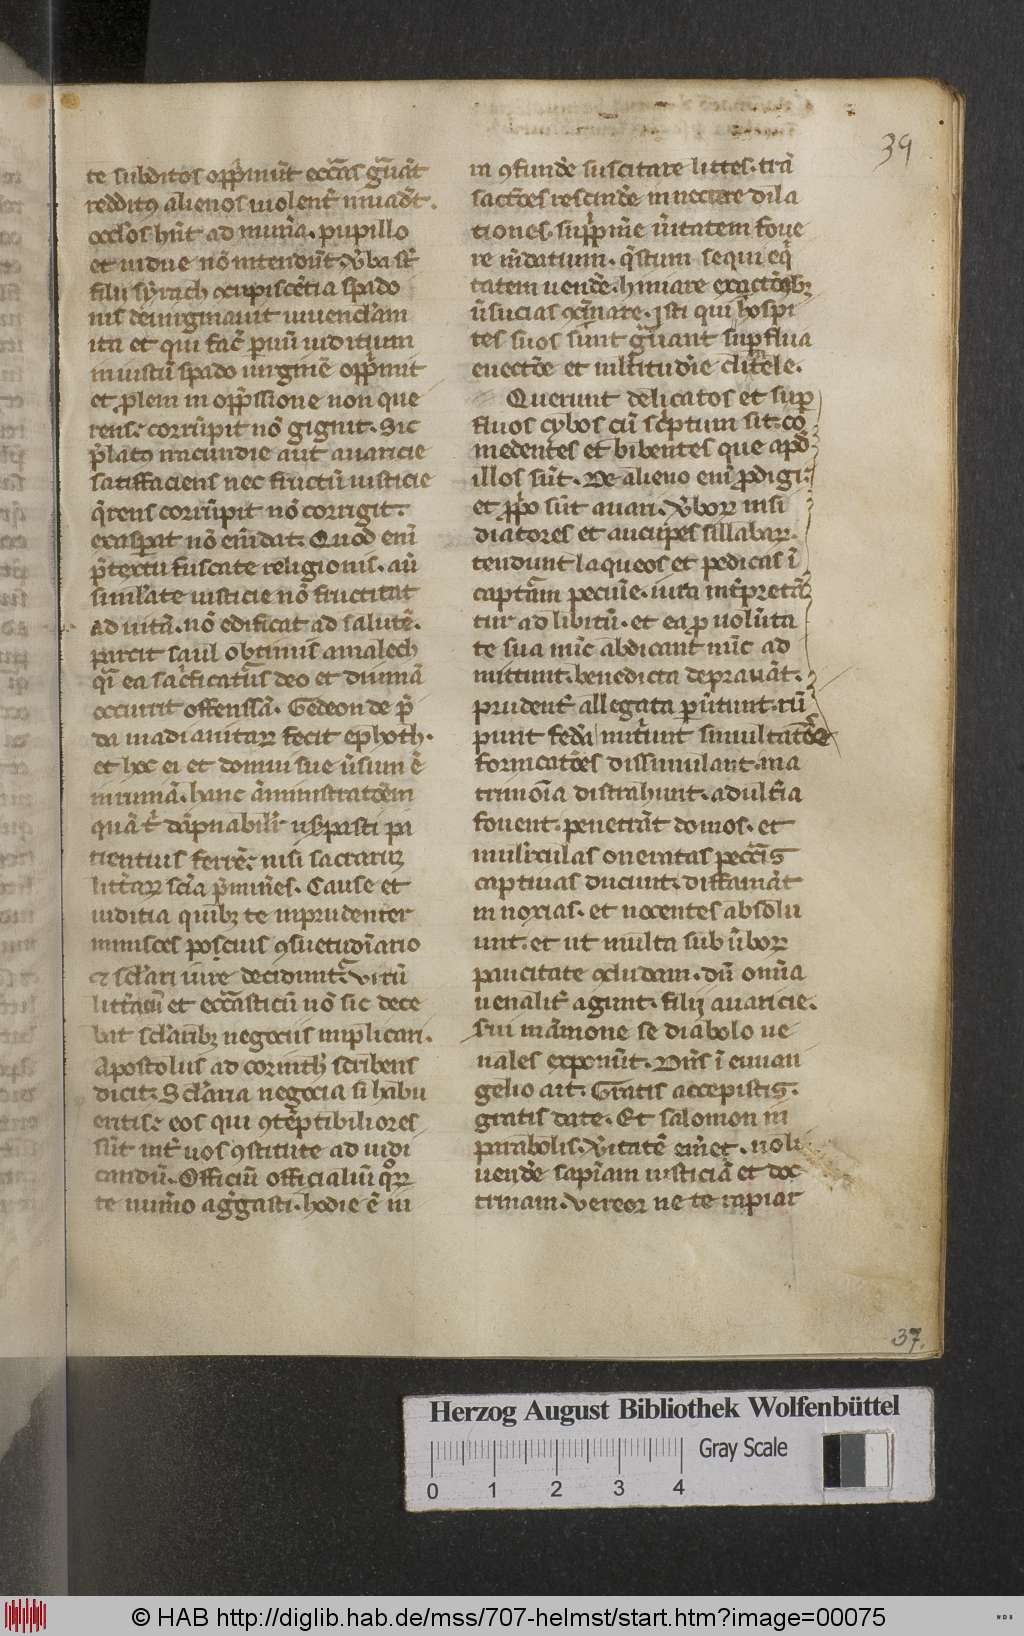 39
te subditos opp̄mūt ecc̄as gᵃuāt
redditꝰ alienos uiolent̄ inuadūt.
occl̓os hn̄t ad munᵃ. pupillo
et uidue nō intendūt. v̓ba st̄
filii syrach ꝯcupiscētia spado
nis deuirginauit iuuencl̓am
ita et qui fac̄ p uī iuditium
iniustū spado uirginē opp̄mit
et plem in opp̄ssione non que
rens: corrūpit nō gignit. Sic
p̄lato iracundie aut auaricie
satiffaciens nec fructū iusticie
q̄rens corrūpit nō corrigit.
exaspat nō em̄dat. Quod em̄
p̄textu fuscate religionis. au̓
simulate iusticie nō fructitat
ad uitā. nō edificat ad salutē.
parcit saul obtimis amalech
qͥ ea sacͥficatᵘs deo et diuinā
occurit offenssā. Gedeon de p̄
da madianitaꝝ fecit ephoth.
et hoc ei et domui sue u̓sum ē
in ruinā. hanc āministratōem
quā t̓ dāpnabilit̓ usͬpasti pa
tientius ferrē: nisi sacraꝝ
litt̓aꝝ scīa p̄mines. Cause et
iuditia quibꝫ te inprudenter
inmisces poscuis ꝯsuetudīario
et scl̓ari iure deciduntᵃ. Virū
litt̓atū et ecc̄asticū nō sic dece
bat scl̓aribꝫ negociis implicari.
Apostolus ad corinth̓ scribens
dicit: Scl̓aria negocia si habu
eritis: eos qui ꝯtēptibiliores
sūt int̓ uos ꝯstituite ad iudi
candū. Officiū officialiū qͦꝝ
te num̓o aggᵉgasti. hodie ē in
iᵃ ꝯfund̓e suscitare littes. trā
sactōes rescind̓e innectere dila
tiones. supp̄m̓e u̓itatem foue
re m̄datium. qͣstum sequi eqͥ
tatem uend̓e. hiniare exactōibꝫ
u̓sucias ꝯcinnare. Jsti qui hospi
tes suos sunt gᵃuant supflua
euectōe et multitudīe cliētele.
Querunt delicatos et sup
fluos cybos cū scͥptum sit. co
medentes et bibentes que apd̓
illos sūt. De alieno em̄ ꝓdigi.
et ꝓpͥo sūt auari. v̓boꝝ insi
diatores et aucupes sillabaꝝ.
tendunt laqueos et pedicas ī
captᵃm pecunie. iura int̓pretā
tur ad libitū. et ea ꝓ uolūta
te sua nūc abdicant nūc ad
mittunt. benedicta deprauāt.
prudent̓ allegata pu̓tunt. rū
punt fed̓a nutͥunt simultates
fornicatōes dissimulant. ma
trimoīa distrahunt. adult̓ia
fouent. penetrāt domos. et
mulr̓culas oneratas pecc̄is
captiuas ducunt. diffamāt
innoxias. et nocentes absolu
unt. et ut multa sub u̓boꝝ
paucitate ꝯcludam. dū omīa
uenalit̓ agunt. filij auaricie.
sui māmone se diabolo ue
nales exponūt. Dn̄s ī euuan
gelio ait. Gratis accepistis.
gratis date. Et salomon in
parabolis. v̓itatē em̄ et. noli
uend̓e sapīam iusticiā et doc
trinam. Vereor ne te rapiat
37.
Herzog August Bibliothek Wolfenbüttel
Gray Scale
0 1 2 3 4
© HAB http://diglib.hab.de/mss/707-helmst/start.htm?image=00075